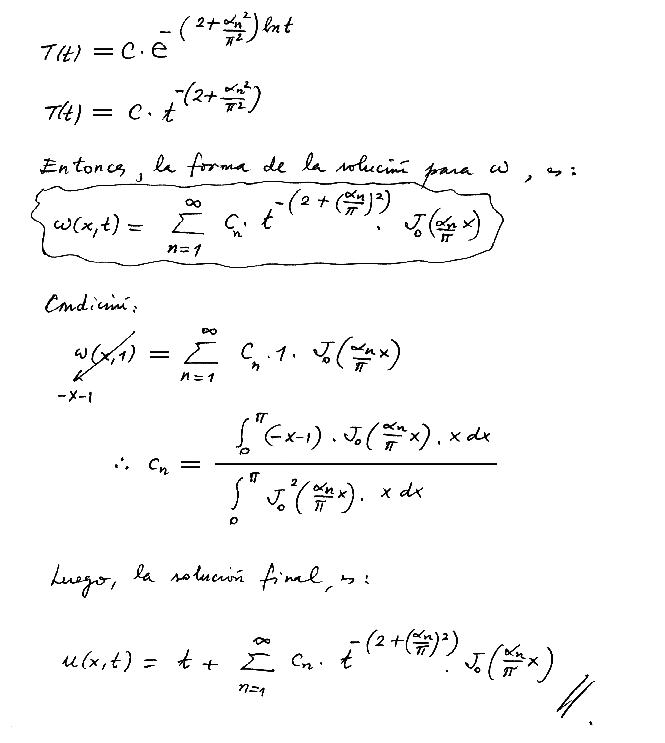 T(t) = C · e^{-(2 + αn²/π²) ln t}
T(t) = C · t^{-(2 + αn²/π²)}
Entonces, la forma de la solución para ω, es:
ω(x,t) = ∑_{n=1}^{∞} Cn · t^{-(2 + (αn/π)²)} · J₀(αn/π x)
Condición:
ω(x,1) = ∑_{n=1}^{∞} Cn · 1 · J₀(αn/π x)
-x-1
∴ Cn = ∫₀^π (-x-1) · J₀(αn/π x) · x dx / ∫₀^π J₀²(αn/π x) · x dx
Luego, la solución final, es:
u(x,t) = t + ∑_{n=1}^{∞} Cn · t^{-(2 + (αn/π)²)} · J₀(αn/π x) //.